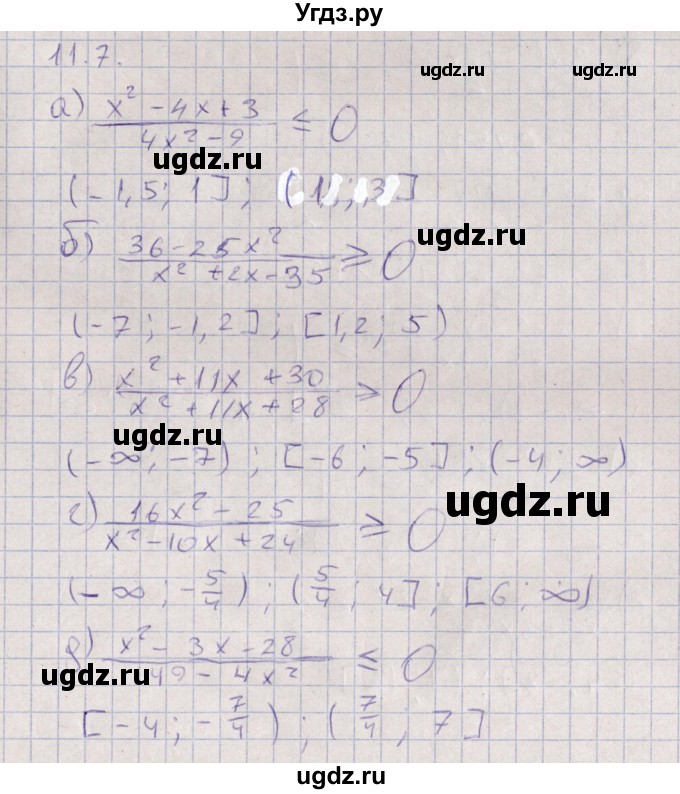 Угдз.ру
11.7.
ugdz.ru ugdz.ru
а) (x² - 4x + 3)/(4x² - 9) ≤ 0
ugdz.ru
(-1,5; 1]; (1,5; 3]
ugdz.ru
б) (36 - 25x²)/(x² + 2x - 35) ≥ 0
(-7; -1,2]; [1,2; 5)
в) (x² + 11x + 30)/(x² + 11x + 28) ≥ 0
ugdz.ru
(-∞; -7); [-6; -5]; (-4; ∞)
г) (16x² - 25)/(x² - 10x + 24) ≥ 0
ugdz.ru
(-∞; -5/4); (5/4; 4]; [6; ∞)
ugdz.ru
д) (x² - 3x - 28)/(49 - 4x²) ≤ 0
ugdz.ru
[-4; -7/4); (7/4; 7]
ugdz.ru